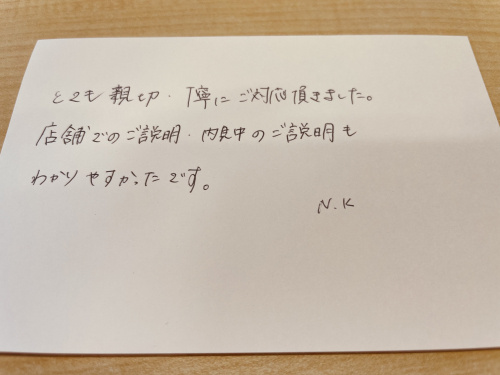 とても親切・丁寧にご対応頂きました。
店舗でのご説明・内見中のご説明も
わかりやすかったです。
N.K